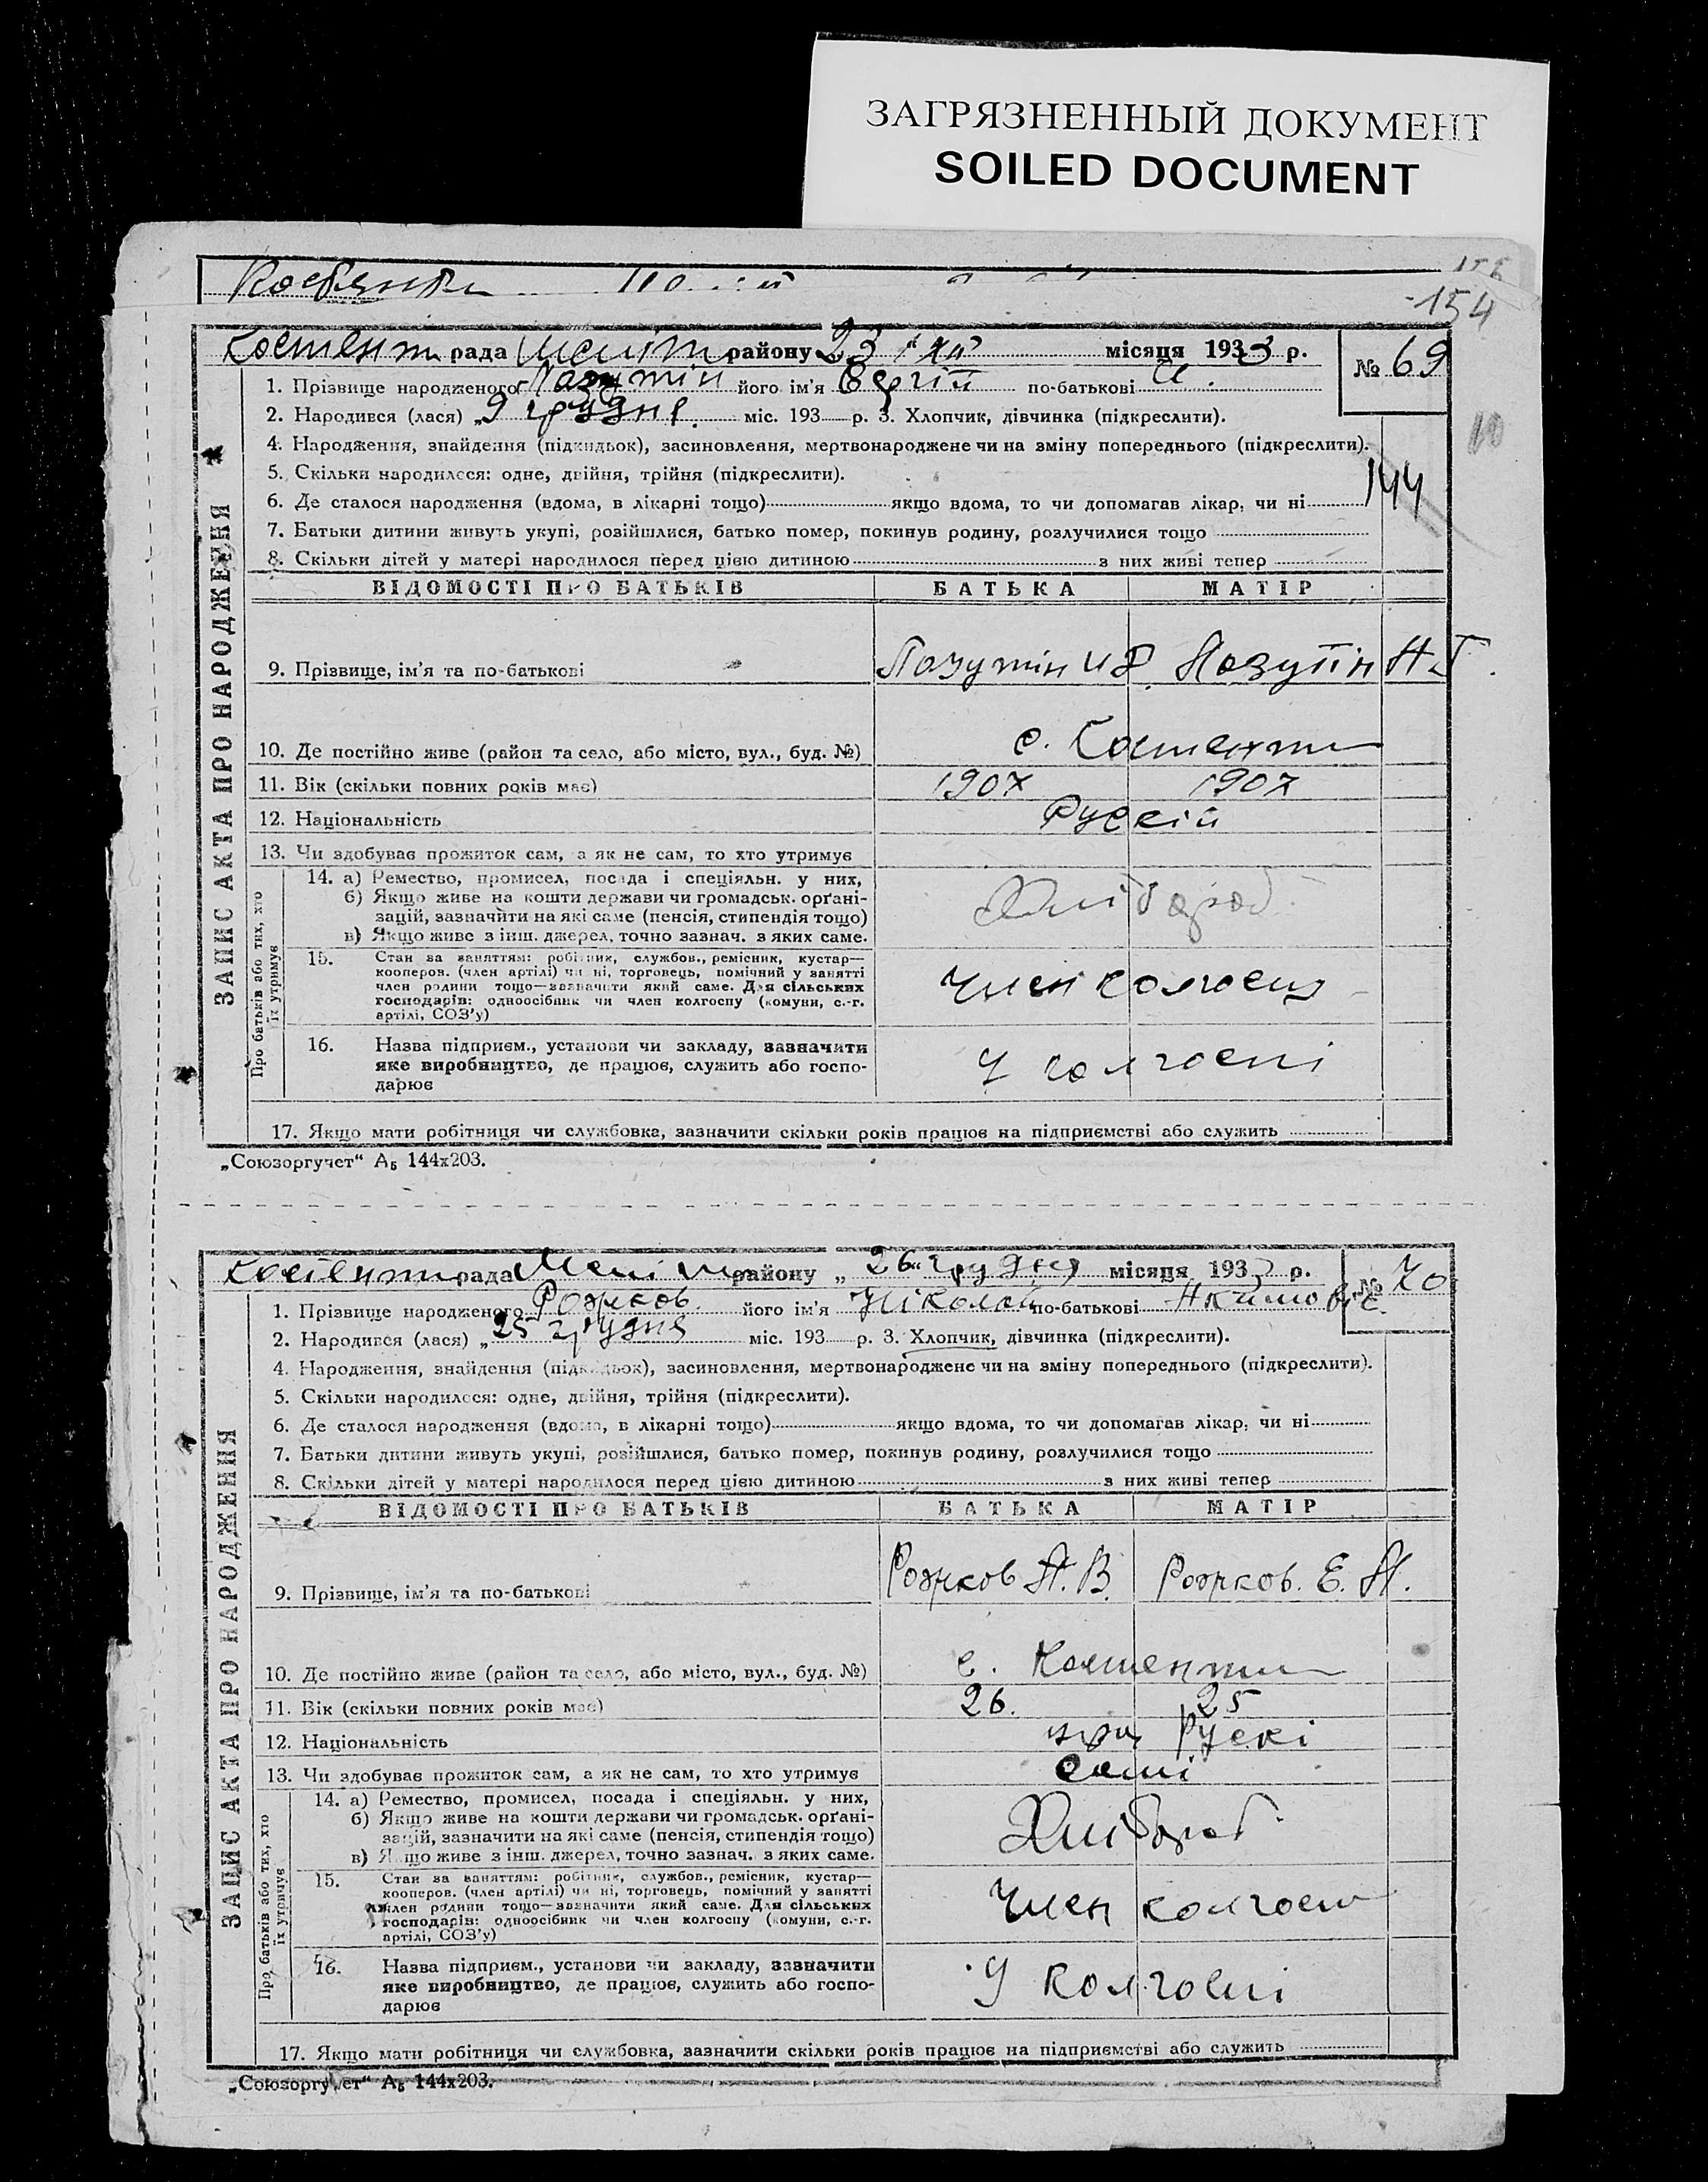 ЗАГРЯЗНЕННЫЙ ДОКУМЕНТ
SOILED DOCUMENT
154
рада району 23 XII місяця 1933 р. № 69
1. Прізвище народженого Лазутін його ім'я Сергій по-батькові И.
2. Народився (лася) „ 9 грудня міс. 193 р. 3. Хлопчик, дівчинка (підкреслити).
4. Народження, знайдення (підкидьок), засиновлення, мертвонароджене чи на зміну попереднього (підкреслити).
5. Скільки народилося: одне, двійня, трійня (підкреслити).
144
6. Де сталося народження (вдома, в лікарні тощо) якщо вдома, то чи допомагав лікар, чи ні
7. Батьки дитини живуть укупі, розійшлися, батько помер, покинув родину, розлучилися тощо
8. Скільки дітей у матері народилося перед цією дитиною з них живі тепер
ЗАПИС АКТА ПРО НАРОДЖЕННЯ
ВІДОМОСТІ ПРО БАТЬКІВ БАТЬКА МАТІР
9. Прізвище, ім'я та по-батькові Лазутін И Лазутін
10. Де постійно живе (район та село, або місто, вул., буд. №) с.
11. Вік (скільки повних років має) 1907 1907
12. Національність Рускій
13. Чи здобуває прожиток сам, а як не сам, то хто утримує
Про батьків або тих, хто їх утримує
14. а) Ремество, промисел, посада і спеціяльн. у них,
б) Якщо живе на кошти держави чи громадськ. орґані-
зацій, зазначити на які саме (пенсія, стипендія тощо)
в) Якщо живе з інш. джерел, точно зазнач. з яких саме.
Хлібороб
15. Стан за заняттям: робітник, службов., ремісник, кустар—
кооперов. (член артілі) чи ні, торговець, помічний у занятті
член родини тощо—зазначити який саме. Для сільських
господарів: одноосібник чи член колгоспу (комуни, с.-г.
артілі, СОЗ'у)
Член колгоспу
16. Назва підприєм., установи чи закладу, зазначити
яке виробництво, де працює, служить або госпо-
дарює
У колгоспі
17. Якщо мати робітниця чи службовка, зазначити скільки років працює на підприємстві або служить
„Союзоргучет“ Аб 144х203.
рада району „ 26 “ грудня місяця 1933 р. № 70
1. Прізвище народженого Рожков його ім'я Ніколай по-батькові
2. Народився (лася) „ 25 грудня міс. 193 р. 3. Хлопчик, дівчинка (підкреслити).
4. Народження, знайдення (підкидьок), засиновлення, мертвонароджене чи на зміну попереднього (підкреслити).
5. Скільки народилося: одне, двійня, трійня (підкреслити).
6. Де сталося народження (вдома, в лікарні тощо) якщо вдома, то чи допомагав лікар, чи ні
7. Батьки дитини живуть укупі, розійшлися, батько помер, покинув родину, розлучилися тощо
8. Скільки дітей у матері народилося перед цією дитиною з них живі тепер
ЗАПИС АКТА ПРО НАРОДЖЕННЯ
ВІДОМОСТІ ПРО БАТЬКІВ БАТЬКА МАТІР
9. Прізвище, ім'я та по-батькові Рожков А. В. Рожков. Е. А.
10. Де постійно живе (район та село, або місто, вул., буд. №) с.
11. Вік (скільки повних років має) 26. 25
12. Національність Рускі
13. Чи здобуває прожиток сам, а як не сам, то хто утримує самі
Про батьків або тих, хто їх утримує
14. а) Ремество, промисел, посада і спеціяльн. у них,
б) Якщо живе на кошти держави чи громадськ. орґані-
зацій, зазначити на які саме (пенсія, стипендія тощо)
в) Якщо живе з інш. джерел, точно зазнач. з яких саме.
Хлібороб
15. Стан за заняттям: робітник, службов., ремісник, кустар—
кооперов. (член артілі) чи ні, торговець, помічний у занятті
член родини тощо—зазначити який саме. Для сільських
господарів: одноосібник чи член колгоспу (комуни, с.-г.
артілі, СОЗ'у)
Член колгосп
16. Назва підприєм., установи чи закладу, зазначити
яке виробництво, де працює, служить або госпо-
дарює
У колгоспі
17. Якщо мати робітниця чи службовка, зазначити скільки років працює на підприємстві або служить
„Союзоргучет“ Аб 144х203.